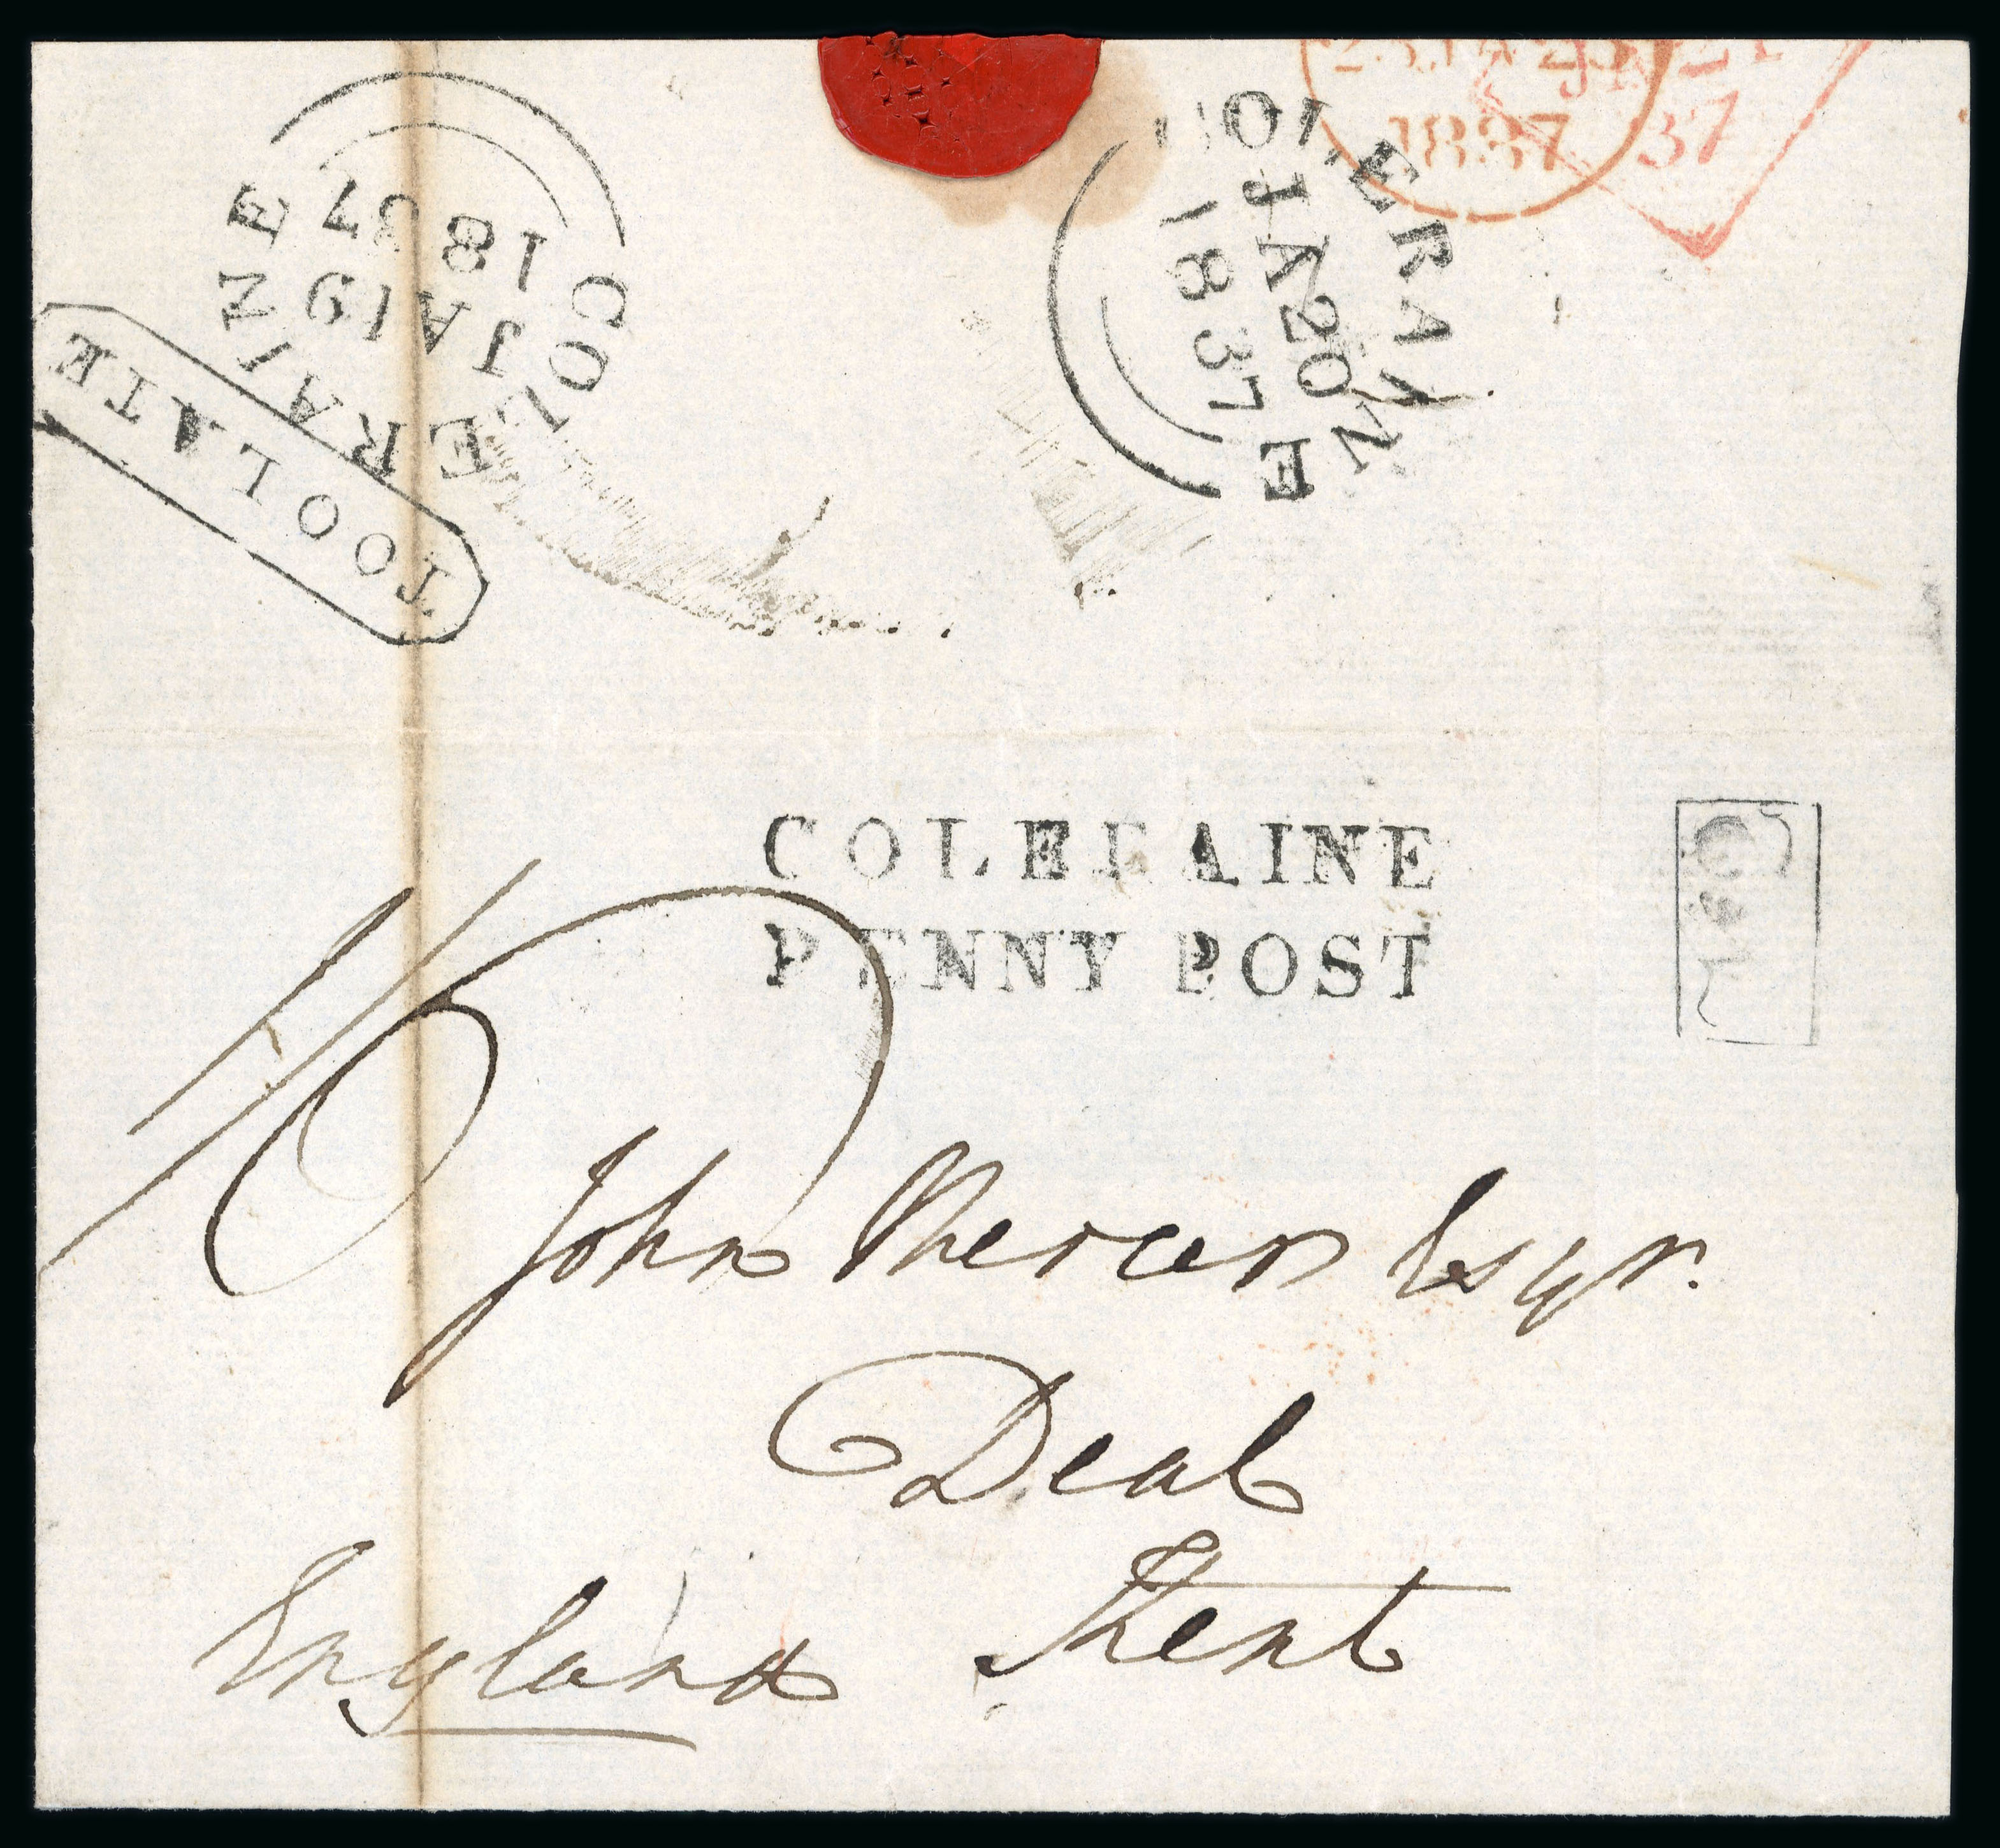 COLERAINE
JA 19
1837
TOO LATE
COLERAINE
JA 20
1837
1837
37
COLERAINE
PENNY POST
John Mercer Esqr.
Deal
Kent
England